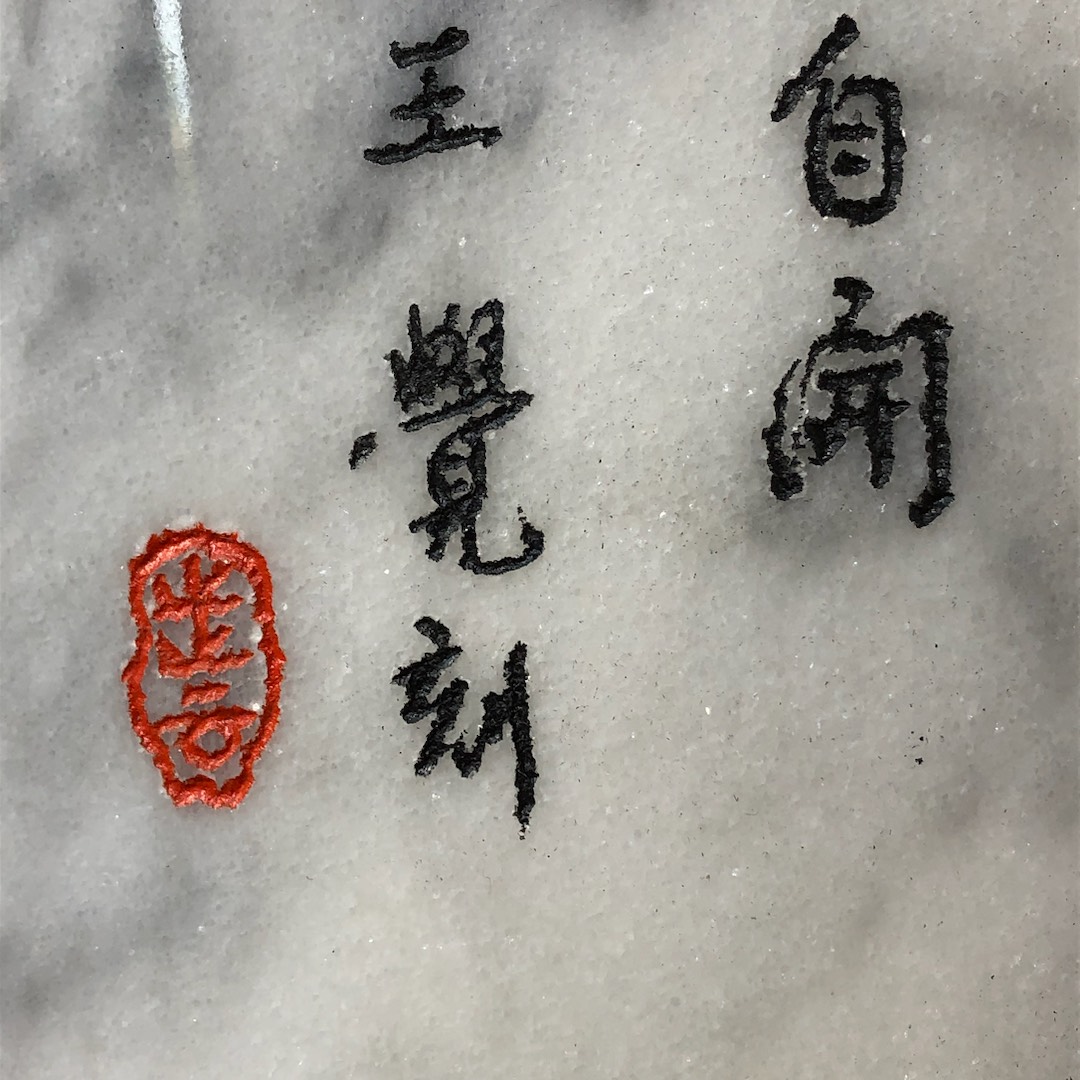 自開
王覺刻